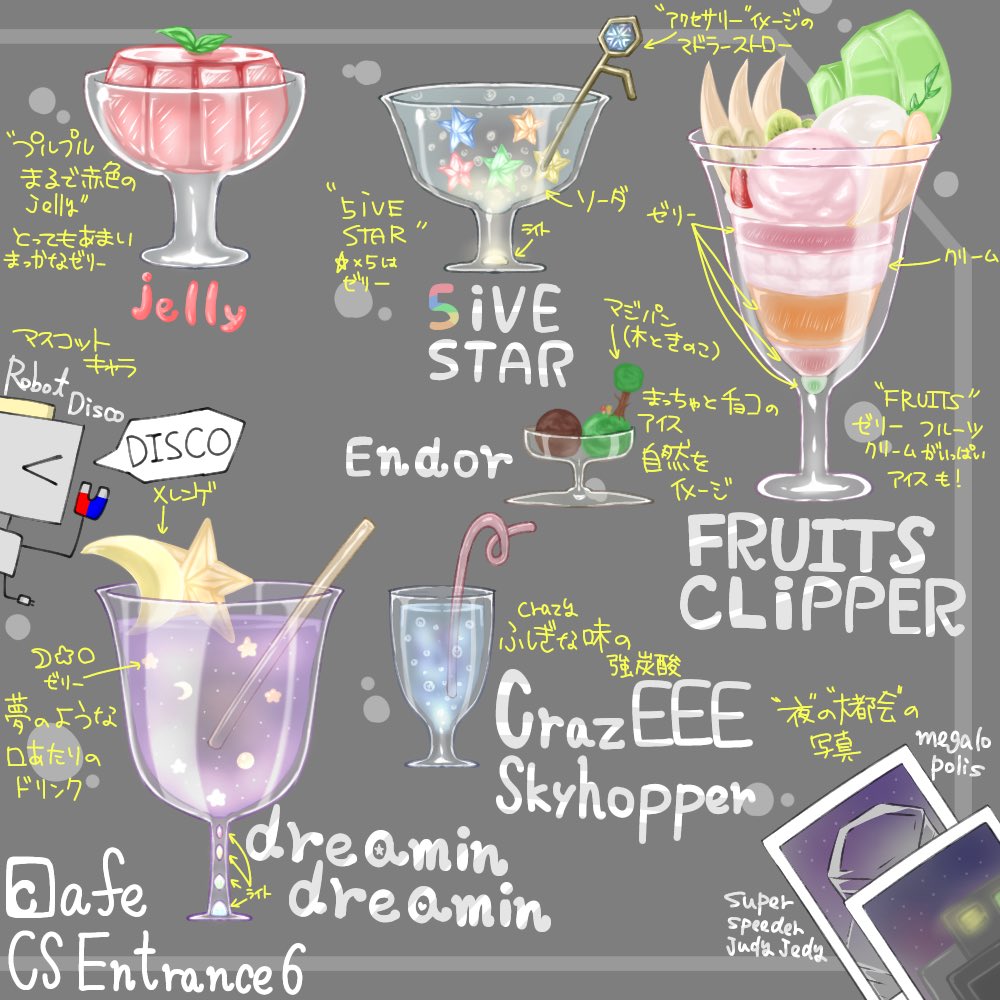 "アクセサリー"イメージの
マドラーストロー
"プルプル
まるで赤色の
jelly"
とってもあまい
まっかなゼリー
jelly
"5iVE
STAR"
☆×5は
ゼリー
ソーダ
ライト
5iVE
STAR
ゼリー
クリーム
"FRUITS"
ゼリー フルーツ
クリームがいっぱい
アイスも!
FRUITS
CLiPPER
マジパン
(木ときのこ)
まっちゃとチョコの
アイス
自然を
イメージ
Endor
マスコット
キャラ
Robot
Disco
DISCO
メレンゲ
☽☆○
ゼリー
夢のような
口あたりの
ドリンク
ライト
dreamin
dreamin
crazy
ふしぎな味の
強炭酸
CrazEEE
Skyhopper
"夜の大都会"の
写真
megalo
polis
super
speeder
Judy Jedy
Cafe
CS Entrance6